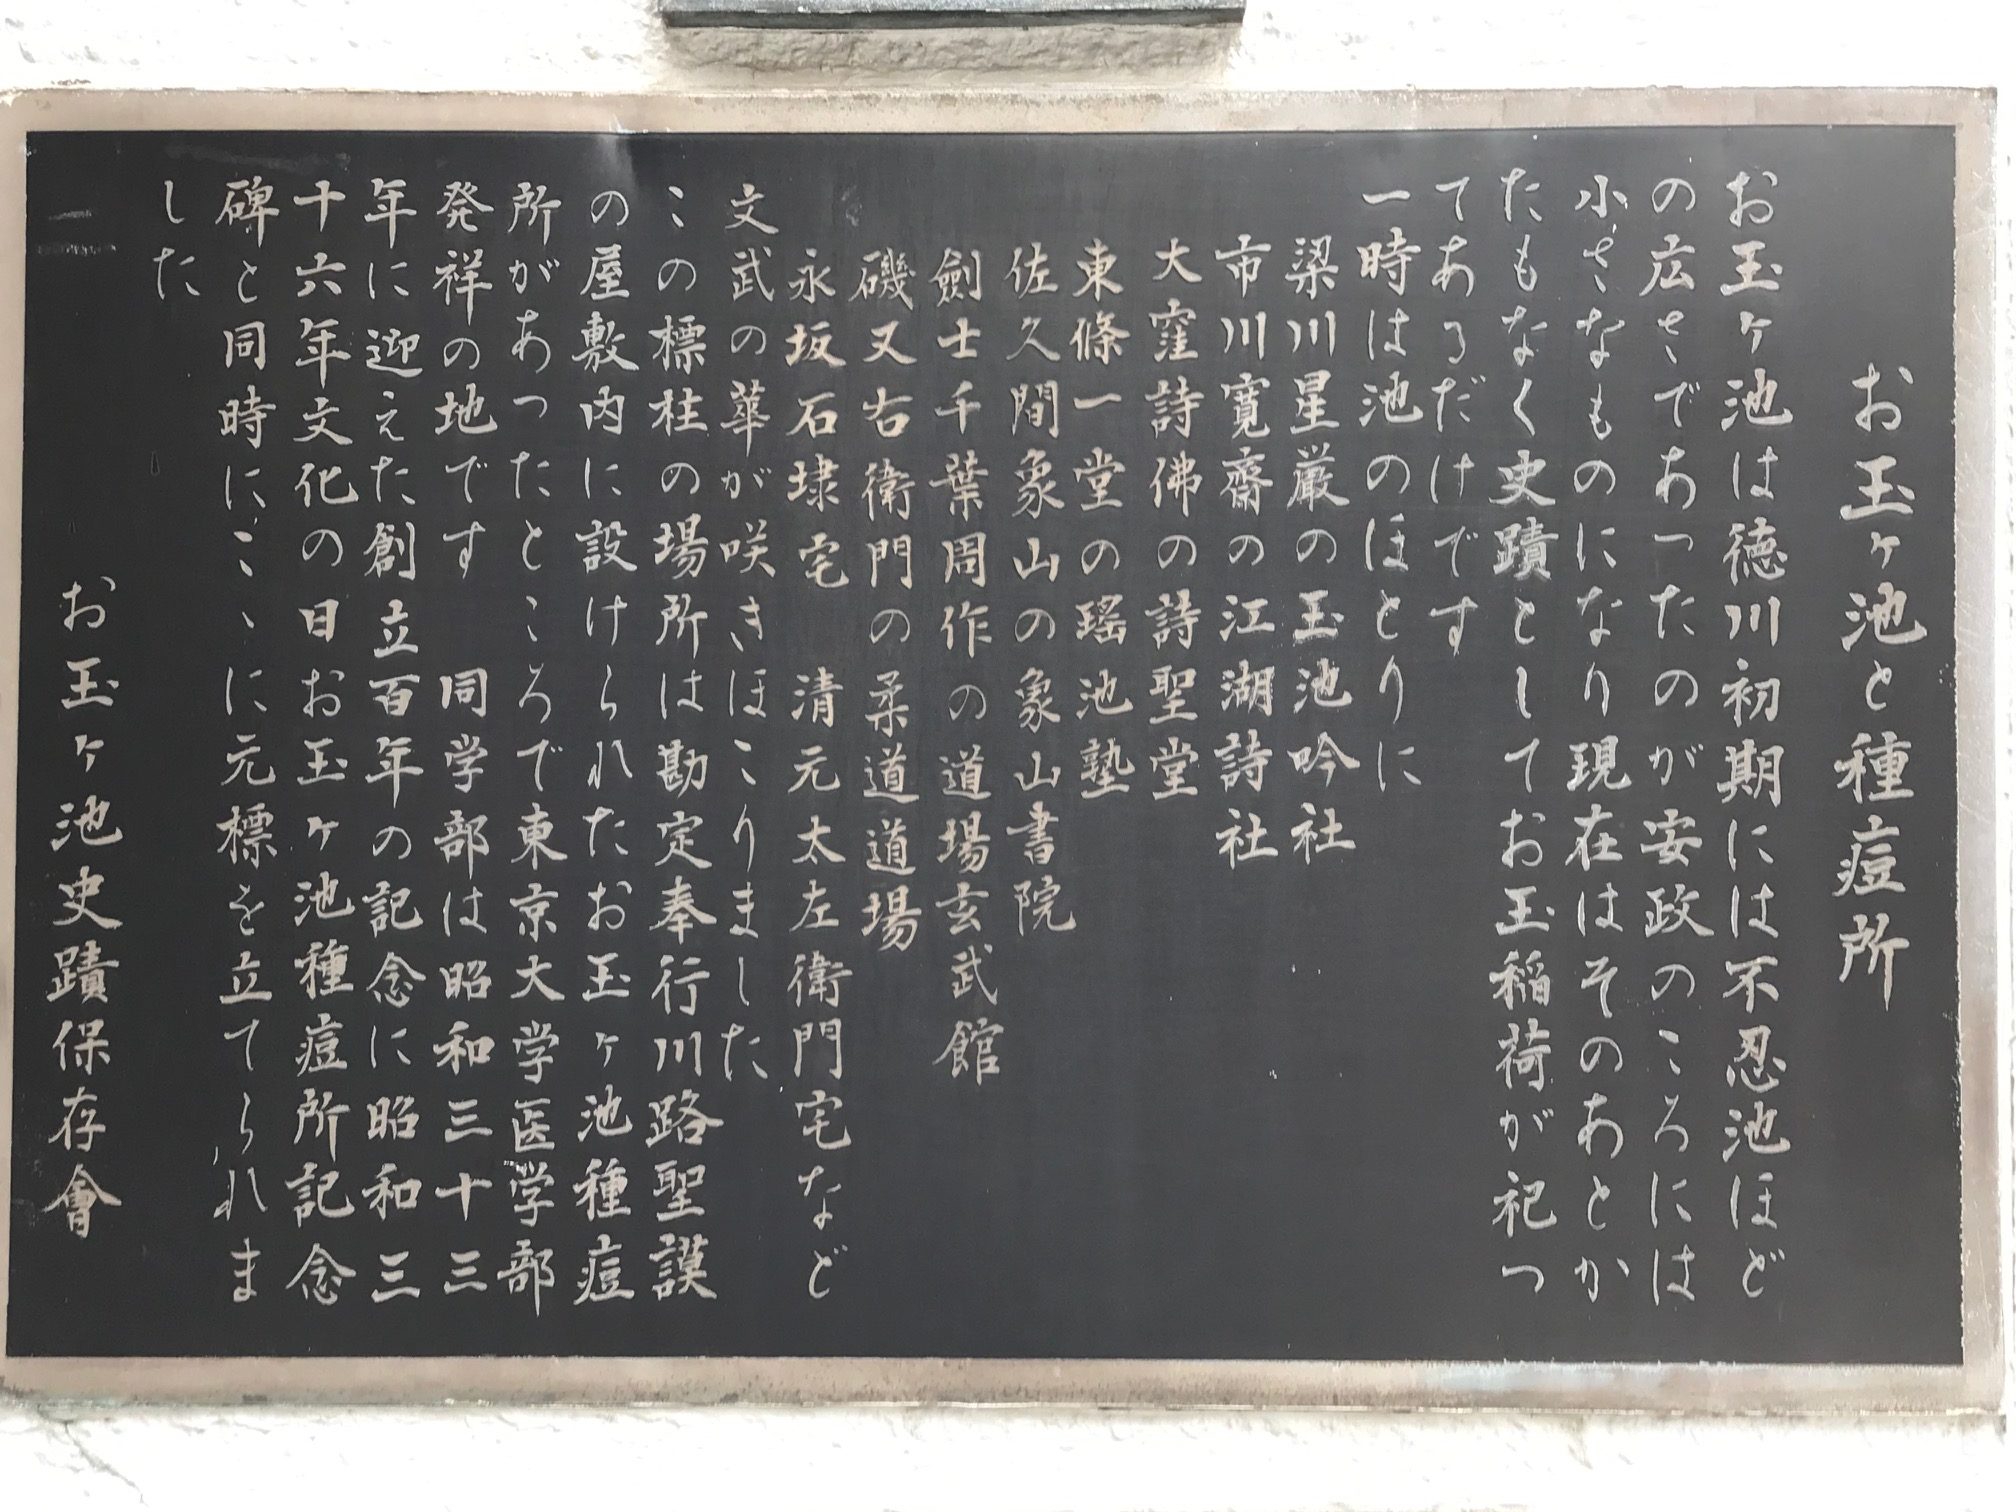 お玉ヶ池と種痘所
お玉ヶ池は徳川初期には不忍池ほど
の広さであったのが安政のころには
小さなものになり現在はそのあとか
たもなく史蹟としてお玉稲荷が祀っ
てあるだけです
一時は池のほとりに
梁川星厳の玉池吟社
市川寛齋の江湖詩社
大窪詩佛の詩聖堂
東條一堂の瑶池塾
佐久間象山の象山書院
劍士千葉周作の道場玄武館
磯又右衛門の柔道道場
永坂石埭宅　清元太左衛門宅など
文武の華が咲きほこりました
この標柱の場所は勘定奉行川路聖謨
の屋敷内に設けられたお玉ヶ池種痘
所があったところで東京大学医学部
発祥の地です　同学部は昭和三十三
年に迎えた創立百年の記念に昭和三
十六年文化の日お玉ヶ池種痘所記念
碑と同時にこゝに元標を立てられま
した
お玉ヶ池史蹟保存會